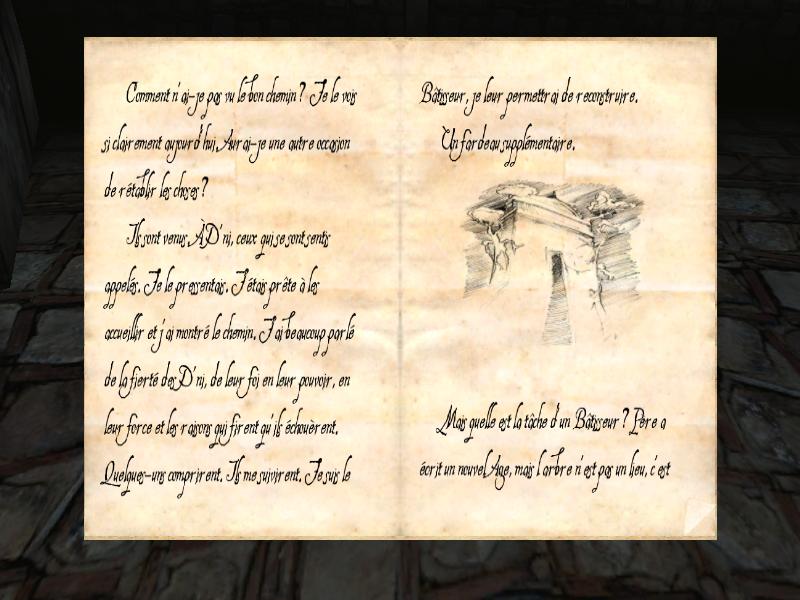 Comment n'ai-je pas vu le bon chemin ? Je le vois
si clairement aujourd'hui. Aurai-je une autre occasion
de rétablir les choses ?
Ils sont venus. À D'ni, ceux qui se sont sentis
appelés. Je le pressentais. J'étais prête à les
accueillir et j'ai montré le chemin. J'ai beaucoup parlé
de la fierté des D'ni, de leur foi en leur pouvoir, en
leur force et les raisons qui firent qu'ils échouèrent.
Quelques-uns comprirent. Ils me suivirent. Je suis le
Bâtisseur, je leur permettrai de reconstruire.
Un fardeau supplémentaire.
Mais quelle est la tâche d'un Bâtisseur ? Père a
écrit un nouvel Age, mais l'arbre n'est pas un lieu, c'est